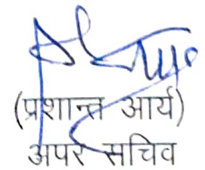 (प्रशान्त आर्य)
अपर सचिव